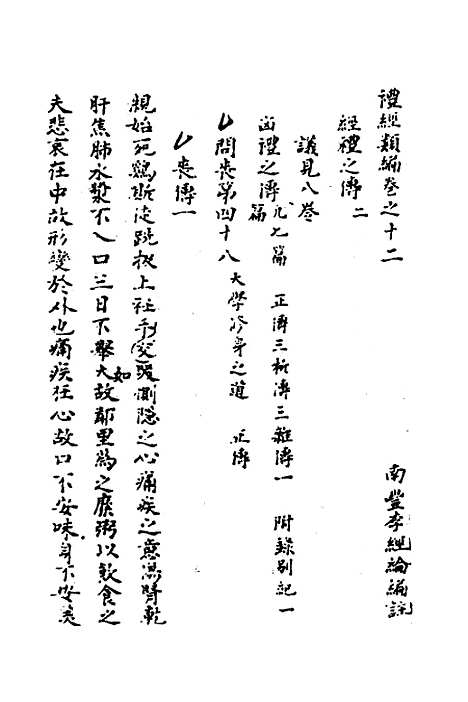 禮經類編卷之十二
南豐李經綸編註
經禮之傳二
議見八卷
凶禮之傳凡七篇 正傳三析傳三雜傳一 附錄別記一篇
問喪第四十八 大學修身之道 正傳
喪傳一
親始死雞斯徒跣扱上衽手交哭惻隱之心痛疾之意傷腎乾
肝焦肺水漿不入口三日不舉火故鄰里為之糜粥以飲食之
夫悲哀在中故形變於外也痛疾在心故口不安味身不安美